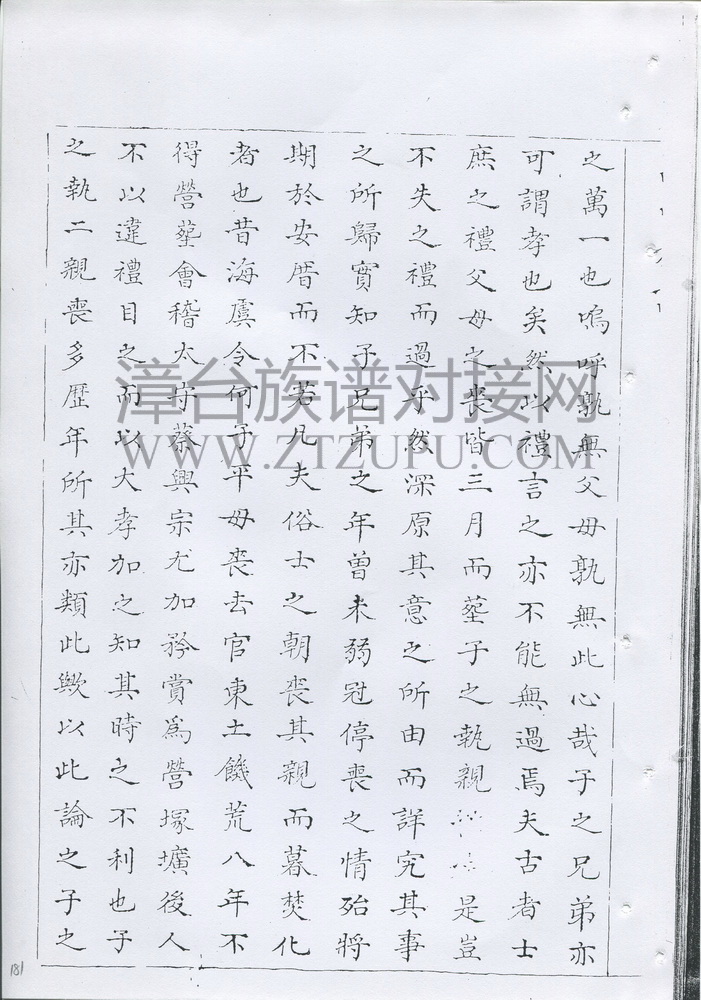 之萬一也嗚呼孰無父母孰無此心哉子之兄弟亦
可謂孝也矣然以禮言之亦不能無過焉夫古者士
庶之禮父母之喪皆三月而塟子之執親是豈
不失之禮而過乎然深原其意之所由而詳究其事
之所歸實知子兄弟之年曾未弱冠停喪之情殆將
期於安厝而不若凡夫俗士之朝喪其親而暮焚化
者也昔海虞令何子平母喪去官東土饑荒八年不
得營塟會稽太守蔡興宗尤加矜賞爲營塚壙後人
不以違禮目之而以大孝加之知其時之不利也子
之執二親喪多歷年所其亦類此歟以此論之子之
漳台族谱对接网
WWW.ZTZUPU.COM
181